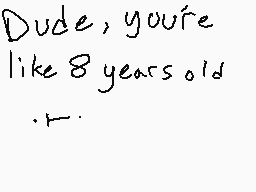 Dude, you're
like 8 years old